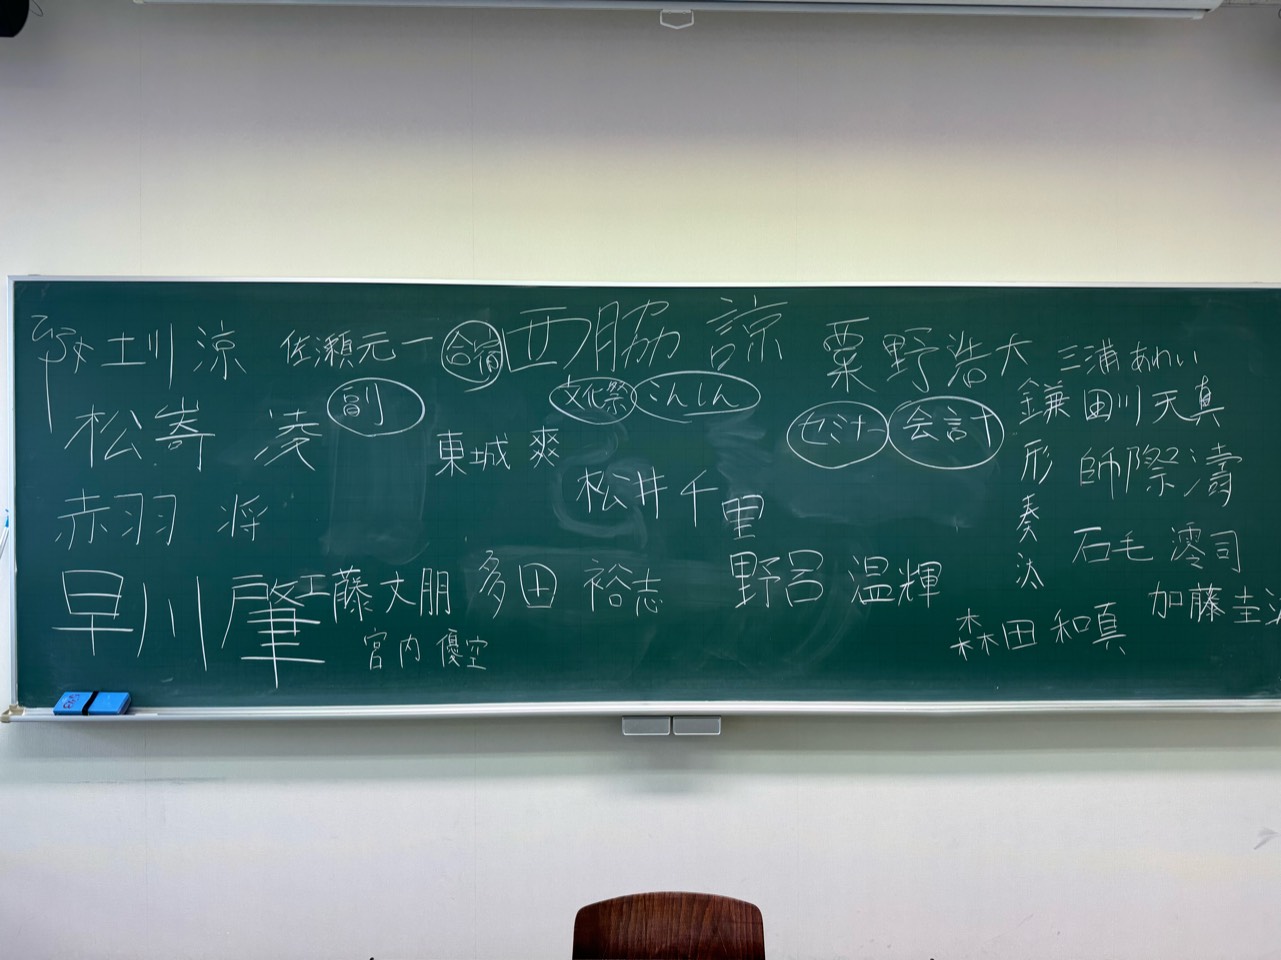 土川 涼
佐瀬元一
合宿
西脇 諒
粟野浩大
三浦あれい
松嵜 凌
副
文化祭
こんしん
セミナー
会計
鎌田川天真
東城 爽
形奏汰
師際濤
赤羽 将
松井千里
石毛 澪司
早川肇
工藤文朋
多田 裕志
野呂 温輝
加藤圭
宮内 優空
森田 和真